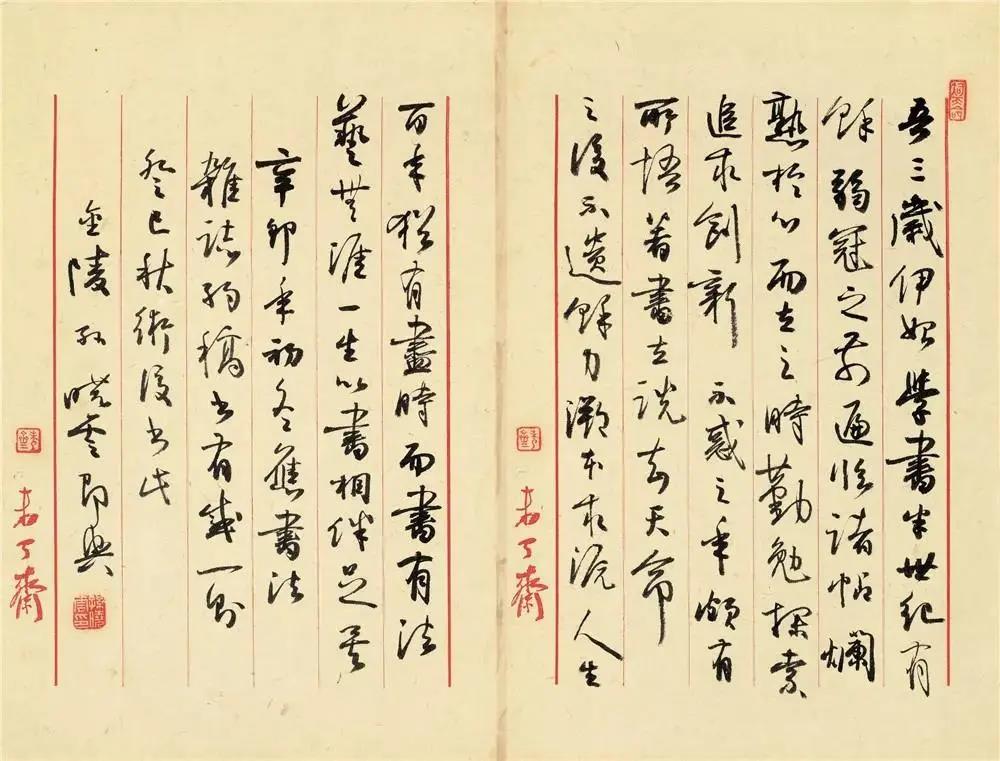 吾三歲伊始學書半世紀有
餘弱冠之前遍臨諸帖爛
熟於心而立之時勤勉探索
追求創新 不惑之年頗有
所悟著書立說知天命
之後不遺餘力溯本求源人生
百年猶有盡時而書有法
藝無涯一生以書相伴足矣
辛卯年初冬應書法
雜誌約稿書有感一則
癸巳秋術後書此
金陵孫曉雲即興